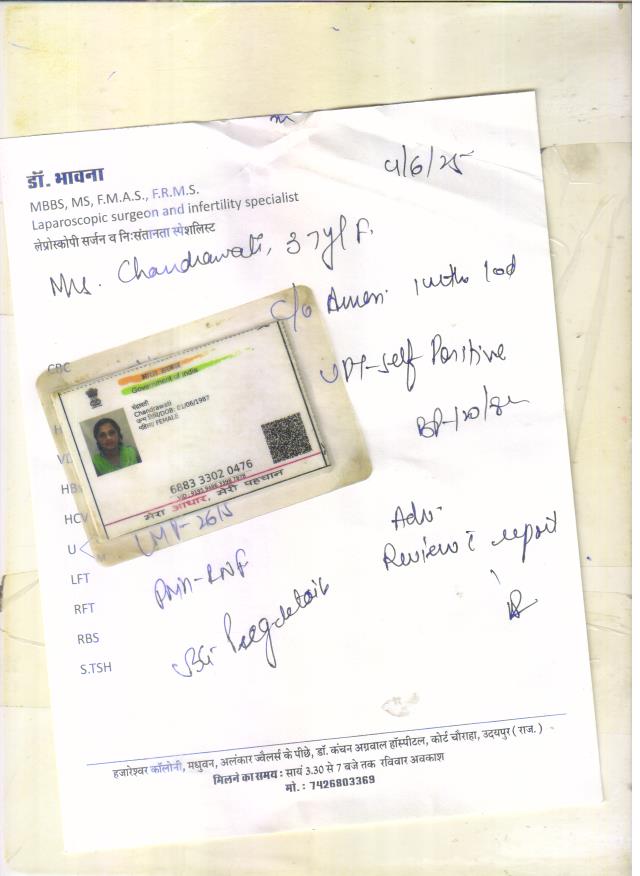 डॉ. भावना
MBBS, MS, F.M.A.S., F.R.M.S.
Laparoscopic surgeon and infertility specialist
लेप्रोस्कोपी सर्जन व निःसंतानता स्पेशलिस्ट
4/6/25
Mrs. Chandrawati, 37y/F.
c/o Amen.
UPT-self Positive
CBC
भारत सरकार
Government of India
चंद्रावती
Chandrawati
जन्म तिथि/DOB: 01/06/1987
महिला/ FEMALE
6883 3302 0476
मेरा आधार, मेरी पहचान
HCV
U
LFT
RFT
RBS
S.TSH
Adv.
Review c report
हजारेश्वर कॉलोनी, मधुवन, अलंकार ज्वैलर्स के पीछे, डॉ. कंचन अग्रवाल हॉस्पीटल, कोर्ट चौराहा, उदयपुर ( राज. )
मिलने का समय : सायं 3.30 से 7 बजे तक रविवार अवकाश
मो. : 7426803369